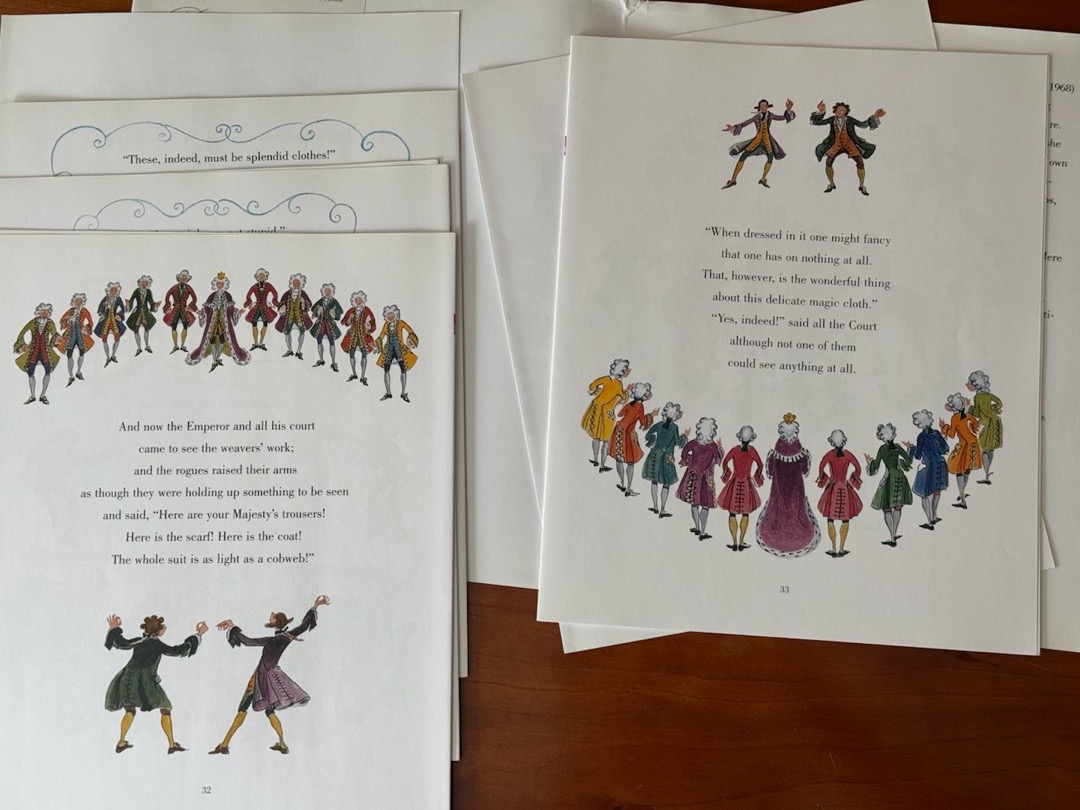 “These, indeed, must be splendid clothes!”
stupid.”
And now the Emperor and all his court
came to see the weavers’ work;
and the rogues raised their arms
as though they were holding up something to be seen
and said, “Here are your Majesty’s trousers!
Here is the scarf! Here is the coat!
The whole suit is as light as a cobweb!”
32
“When dressed in it one might fancy
that one has on nothing at all.
That, however, is the wonderful thing
about this delicate magic cloth.”
“Yes, indeed!” said all the Court
although not one of them
could see anything at all.
33
1968)
re.
he
own
s,
ere
ti-